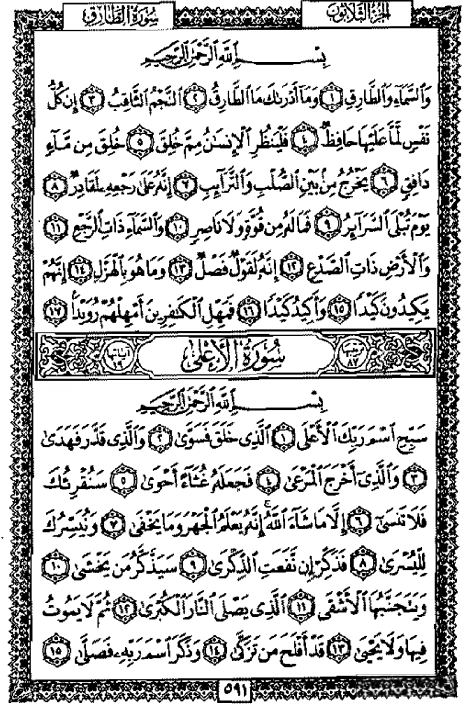 سُورَةُ الطَّارِقِ الجُزْءُ الثَّلَاثُونَ
بِسْمِ اللَّهِ الرَّحْمَٰنِ الرَّحِيمِ
وَالسَّمَاءِ وَالطَّارِقِ ١ وَمَا أَدْرَىٰكَ مَا الطَّارِقُ ٢ النَّجْمُ الثَّاقِبُ ٣ إِن كُلُّ
نَفْسٍ لَّمَّا عَلَيْهَا حَافِظٌ ٤ فَلْيَنظُرِ الْإِنسَٰنُ مِمَّ خُلِقَ ٥ خُلِقَ مِن مَّاءٍ
دَافِقٍ ٦ يَخْرُجُ مِن بَيْنِ الصُّلْبِ وَالتَّرَائِبِ ٧ إِنَّهُ عَلَىٰ رَجْعِهِ لَقَادِرٌ ٨
يَوْمَ تُبْلَى السَّرَائِرُ ٩ فَمَا لَهُ مِن قُوَّةٍ وَلَا نَاصِرٍ ١٠ وَالسَّمَاءِ ذَاتِ الرَّجْعِ ١١
وَالْأَرْضِ ذَاتِ الصَّدْعِ ١٢ إِنَّهُ لَقَوْلٌ فَصْلٌ ١٣ وَمَا هُوَ بِالْهَزْلِ ١٤ إِنَّهُمْ
يَكِيدُونَ كَيْدًا ١٥ وَأَكِيدُ كَيْدًا ١٦ فَمَهِّلِ الْكَٰفِرِينَ أَمْهِلْهُمْ رُوَيْدًا ١٧
ترتيبها ٨٧ سُورَةُ الْأَعْلَىٰ آياتها ١٩
بِسْمِ اللَّهِ الرَّحْمَٰنِ الرَّحِيمِ
سَبِّحِ اسْمَ رَبِّكَ الْأَعْلَى ١ الَّذِي خَلَقَ فَسَوَّىٰ ٢ وَالَّذِي قَدَّرَ فَهَدَىٰ
٣ وَالَّذِي أَخْرَجَ الْمَرْعَىٰ ٤ فَجَعَلَهُ غُثَاءً أَحْوَىٰ ٥ سَنُقْرِئُكَ
فَلَا تَنسَىٰ ٦ إِلَّا مَا شَاءَ اللَّهُ إِنَّهُ يَعْلَمُ الْجَهْرَ وَمَا يَخْفَىٰ ٧ وَنُيَسِّرُكَ
لِلْيُسْرَىٰ ٨ فَذَكِّرْ إِن نَّفَعَتِ الذِّكْرَىٰ ٩ سَيَذَّكَّرُ مَن يَخْشَىٰ ١٠
وَيَتَجَنَّبُهَا الْأَشْقَى ١١ الَّذِي يَصْلَى النَّارَ الْكُبْرَىٰ ١٢ ثُمَّ لَا يَمُوتُ
فِيهَا وَلَا يَحْيَىٰ ١٣ قَدْ أَفْلَحَ مَن تَزَكَّىٰ ١٤ وَذَكَرَ اسْمَ رَبِّهِ فَصَلَّىٰ ١٥
٥٩١